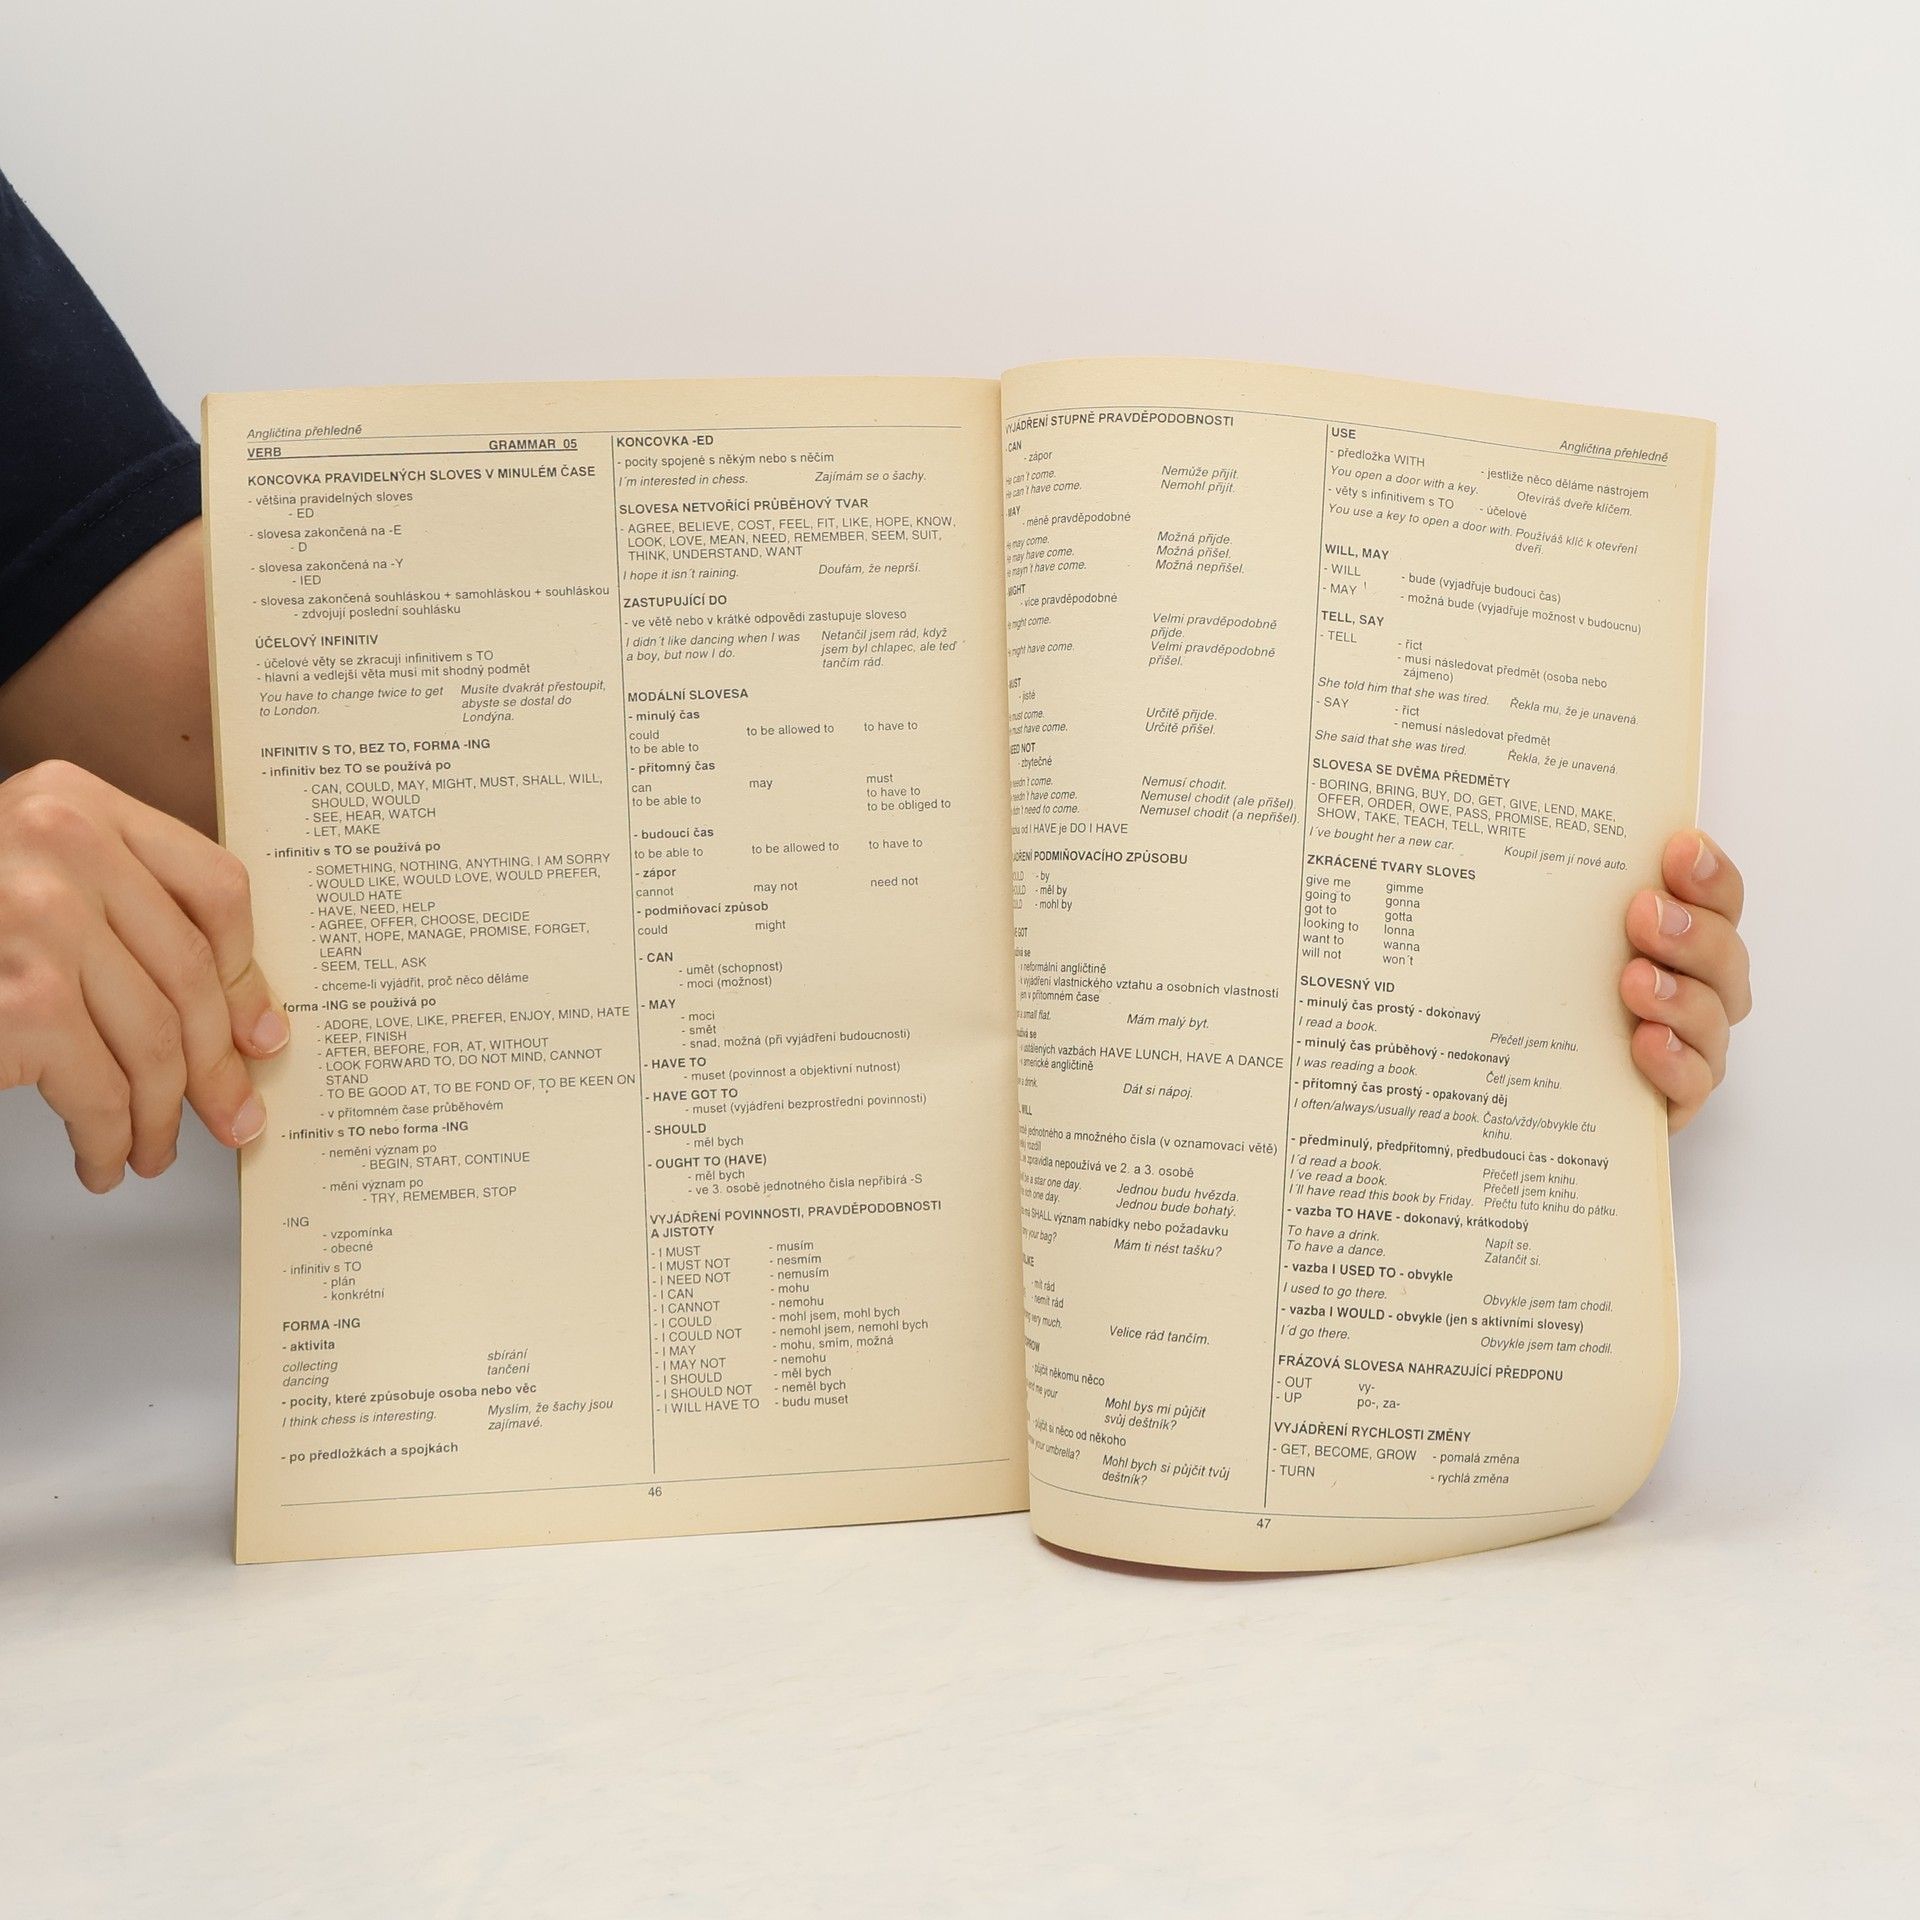 Angličtina přehledně
VERB GRAMMAR 05
KONCOVKA PRAVIDELNÝCH SLOVES V MINULÉM ČASE
- většina pravidelných sloves
- ED
- slovesa zakončená na -E
- D
- slovesa zakončená na -Y
- IED
- slovesa zakončená souhláskou + samohláskou + souhláskou
- zdvojují poslední souhlásku
ÚČELOVÝ INFINITIV
- účelové věty se zkracují infinitivem s TO
- hlavní a vedlejší věta musí mít shodný podmět
You have to change twice to get Musíte dvakrát přestoupit,
to London. abyste se dostal do
Londýna.
INFINITIV S TO, BEZ TO, FORMA -ING
- infinitiv bez TO se používá po
- CAN, COULD, MAY, MIGHT, MUST, SHALL, WILL,
SHOULD, WOULD
- SEE, HEAR, WATCH
- LET, MAKE
- infinitiv s TO se používá po
- SOMETHING, NOTHING, ANYTHING, I AM SORRY
- WOULD LIKE, WOULD LOVE, WOULD PREFER,
WOULD HATE
- HAVE, NEED, HELP
- AGREE, OFFER, CHOOSE, DECIDE
- WANT, HOPE, MANAGE, PROMISE, FORGET,
LEARN
- SEEM, TELL, ASK
- chceme-li vyjádřit, proč něco děláme
forma -ING se používá po
- ADORE, LOVE, LIKE, PREFER, ENJOY, MIND, HATE
- KEEP, FINISH
- AFTER, BEFORE, FOR, AT, WITHOUT
- LOOK FORWARD TO, DO NOT MIND, CANNOT
STAND
- TO BE GOOD AT, TO BE FOND OF, TO BE KEEN ON
- v přítomném čase průběhovém
- infinitiv s TO nebo forma -ING
- nemění význam po
- BEGIN, START, CONTINUE
- mění význam po
- TRY, REMEMBER, STOP
-ING
- vzpomínka
- obecné
- infinitiv s TO
- plán
- konkrétní
FORMA -ING
- aktivita
collecting sbírání
dancing tančení
- pocity, které způsobuje osoba nebo věc
I think chess is interesting. Myslím, že šachy jsou
zajímavé.
- po předložkách a spojkách
KONCOVKA -ED
- pocity spojené s někým nebo s něčím
I´m interested in chess. Zajímám se o šachy.
SLOVESA NETVOŘÍCÍ PRŮBĚHOVÝ TVAR
- AGREE, BELIEVE, COST, FEEL, FIT, LIKE, HOPE, KNOW,
LOOK, LOVE, MEAN, NEED, REMEMBER, SEEM, SUIT,
THINK, UNDERSTAND, WANT
I hope it isn´t raining. Doufám, že neprší.
ZASTUPUJÍCÍ DO
- ve větě nebo v krátké odpovědi zastupuje sloveso
I didn´t like dancing when I was Netančil jsem rád, když
a boy, but now I do. jsem byl chlapec, ale teď
tančím rád.
MODÁLNÍ SLOVESA
- minulý čas
could to be allowed to to have to
to be able to
- přítomný čas
can may must
to be able to to have to
to be obliged to
- budoucí čas
to be able to to be allowed to to have to
- zápor
cannot may not need not
- podmiňovací způsob
could might
- CAN
- umět (schopnost)
- moci (možnost)
- MAY
- moci
- smět
- snad, možná (při vyjádření budoucnosti)
- HAVE TO
- muset (povinnost a objektivní nutnost)
- HAVE GOT TO
- muset (vyjádření bezprostřední povinnosti)
- SHOULD
- měl bych
- OUGHT TO (HAVE)
- měl bych
- ve 3. osobě jednotného čísla nepřibírá -S
VYJÁDŘENÍ POVINNOSTI, PRAVDĚPODOBNOSTI
A JISTOTY
- I MUST - musím
- I MUST NOT - nesmím
- I NEED NOT - nemusím
- I CAN - mohu
- I CANNOT - nemohu
- I COULD - mohl jsem, mohl bych
- I COULD NOT - nemohl jsem, nemohl bych
- I MAY - mohu, smím, možná
- I MAY NOT - nemohu
- I SHOULD - měl bych
- I SHOULD NOT - neměl bych
- I WILL HAVE TO - budu muset
46
VYJÁDŘENÍ STUPNĚ PRAVDĚPODOBNOSTI
- CAN
- zápor
He can´t come. Nemůže přijít.
He can´t have come. Nemohl přijít.
MAY
- méně pravděpodobné
may come. Možná přijde.
may have come. Možná přišel.
mayn´t have come. Možná nepřišel.
MIGHT
- více pravděpodobné
might come. Velmi pravděpodobně
přijde.
might have come. Velmi pravděpodobně
přišel.
- jisté
must come. Určitě přijde.
must have come. Určitě přišel.
NOT
- zbytečné
needn´t come. Nemusí chodit.
have come. Nemusel chodit (ale přišel).
need to come. Nemusel chodit (a nepřišel).
od I HAVE je DO I HAVE
PODMIŇOVACÍHO ZPŮSOBU
- by
- měl by
- mohl by
GOT
se
neformální angličtině
vyjádření vlastnického vztahu a osobních vlastností
jen v přítomném čase
a small flat. Mám malý byt.
se
ustálených vazbách HAVE LUNCH, HAVE A DANCE
americké angličtině
drink. Dát si nápoj.
WILL
jednotného a množného čísla (v oznamovací větě)
rozdíl
zpravidla nepoužívá ve 2. a 3. osobě
be a star one day. Jednou budu hvězda.
rich one day. Jednou bude bohatý.
má SHALL význam nabídky nebo požadavku
your bag? Mám ti nést tašku?
- mít rád
- nemít rád
very much. Velice rád tančím.
- půjčit někomu něco
me your Mohl bys mi půjčit
svůj deštník?
- půjčit si něco od někoho
your umbrella? Mohl bych si půjčit tvůj
deštník?
Angličtina přehledně
USE
- předložka WITH - jestliže něco děláme nástrojem
You open a door with a key. Otevíráš dveře klíčem.
- věty s infinitivem s TO - účelové
You use a key to open a door with. Používáš klíč k otevření
dveří.
WILL, MAY
- WILL - bude (vyjadřuje budoucí čas)
- MAY - možná bude (vyjadřuje možnost v budoucnu)
TELL, SAY
- TELL - říct
- musí následovat předmět (osoba nebo
zájmeno)
She told him that she was tired. Řekla mu, že je unavená.
- SAY - říct
- nemusí následovat předmět
She said that she was tired. Řekla, že je unavená.
SLOVESA SE DVĚMA PŘEDMĚTY
- BORING, BRING, BUY, DO, GET, GIVE, LEND, MAKE,
OFFER, ORDER, OWE, PASS, PROMISE, READ, SEND,
SHOW, TAKE, TEACH, TELL, WRITE
I´ve bought her a new car. Koupil jsem jí nové auto.
ZKRÁCENÉ TVARY SLOVES
give me gimme
going to gonna
got to gotta
looking to lonna
want to wanna
will not won´t
SLOVESNÝ VID
- minulý čas prostý - dokonavý
I read a book. Přečetl jsem knihu.
- minulý čas průběhový - nedokonavý
I was reading a book. Četl jsem knihu.
- přítomný čas prostý - opakovaný děj
I often/always/usually read a book. Často/vždy/obvykle čtu
knihu.
- předminulý, předpřítomný, předbudoucí čas - dokonavý
I´d read a book. Přečetl jsem knihu.
I´ve read a book. Přečetl jsem knihu.
I´ll have read this book by Friday. Přečtu tuto knihu do pátku.
- vazba TO HAVE - dokonavý, krátkodobý
To have a drink. Napít se.
To have a dance. Zatančit si.
- vazba I USED TO - obvykle
I used to go there. Obvykle jsem tam chodil.
- vazba I WOULD - obvykle (jen s aktivními slovesy)
I´d go there. Obvykle jsem tam chodil.
FRÁZOVÁ SLOVESA NAHRAZUJÍCÍ PŘEDPONU
- OUT vy-
- UP po-, za-
VYJÁDŘENÍ RYCHLOSTI ZMĚNY
- GET, BECOME, GROW - pomalá změna
- TURN - rychlá změna
47